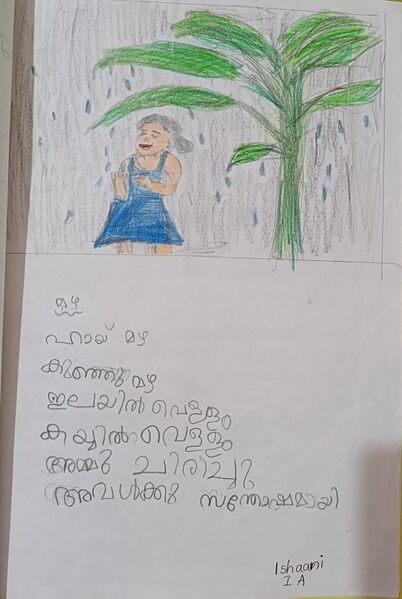 മഴ
ഹായ് മഴ
കുഞ്ഞു മഴ
ഇലയിൽ വെള്ളം
കയ്യിൽ വെള്ളം
അമ്മു ചിരിച്ചു
അവൾക്കു സന്തോഷമായി
Ishaani
I A